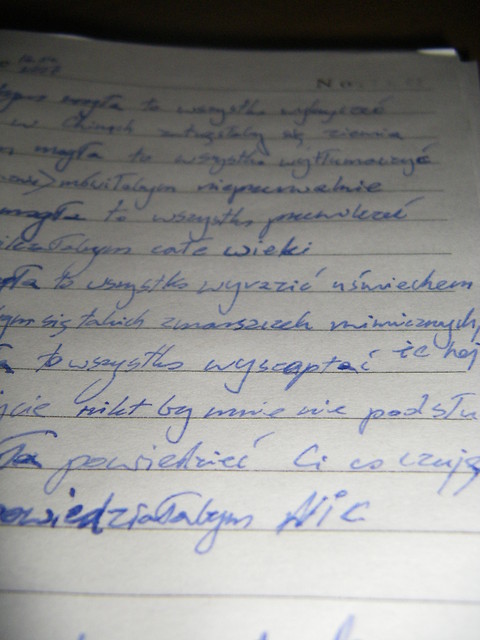 No
mogła to wszystko wykrzyczeć
w Chinach zatrzęsłaby się ziemia
mogła to wszystko wytłumaczyć
mówiłabym nieprzerwalnie
mogła to wszystko przemilczeć
całe wieki
to wszystko wyrazić uśmiechem
się takich zmarszczek mimicznych,
to wszystko wyszeptać
nikt by mnie nie podsłu
powiedzieć Ci co czuję
powiedziałabym NIC